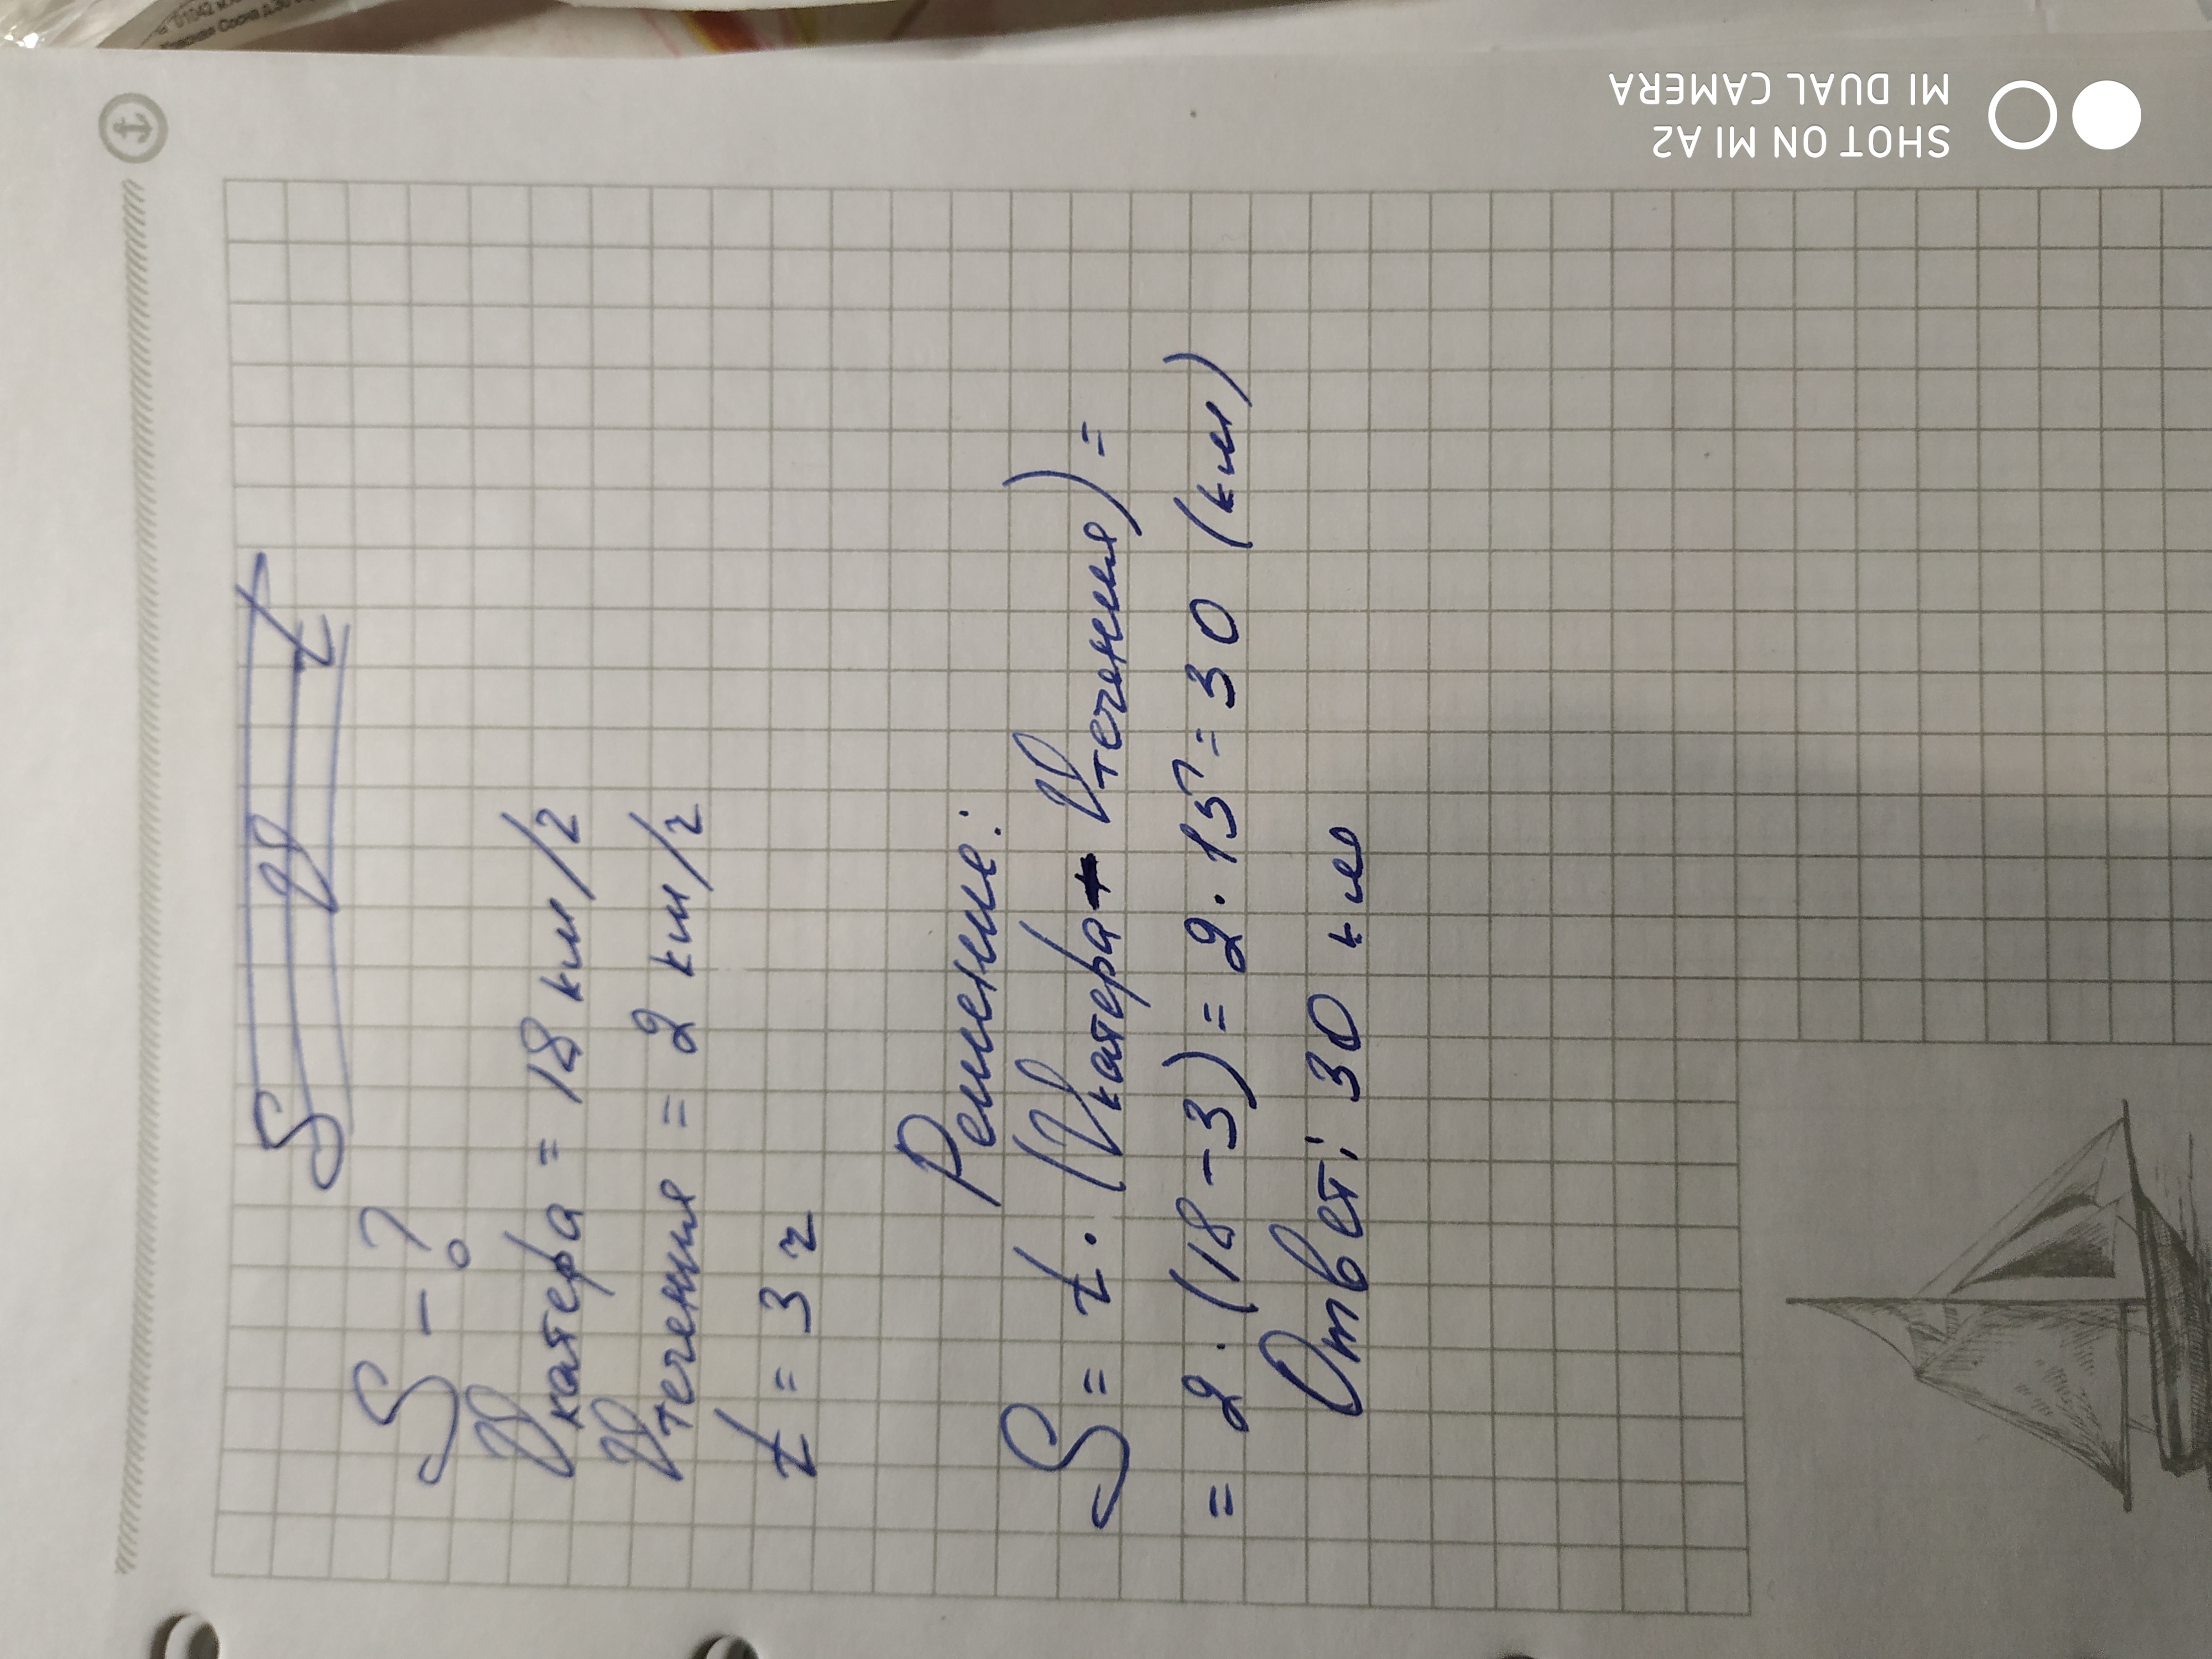 S V t
S - ?
Vкатера = 18 км/г
Vтечения = 2 км/г
t = 3 г
Решение:
S = t · (Vкатера + Vтечения) =
= 2 · (18 - 3) = 2 · 15 = 30 (км)
Ответ: 30 км
SHOT ON MI A2
MI DUAL CAMERA